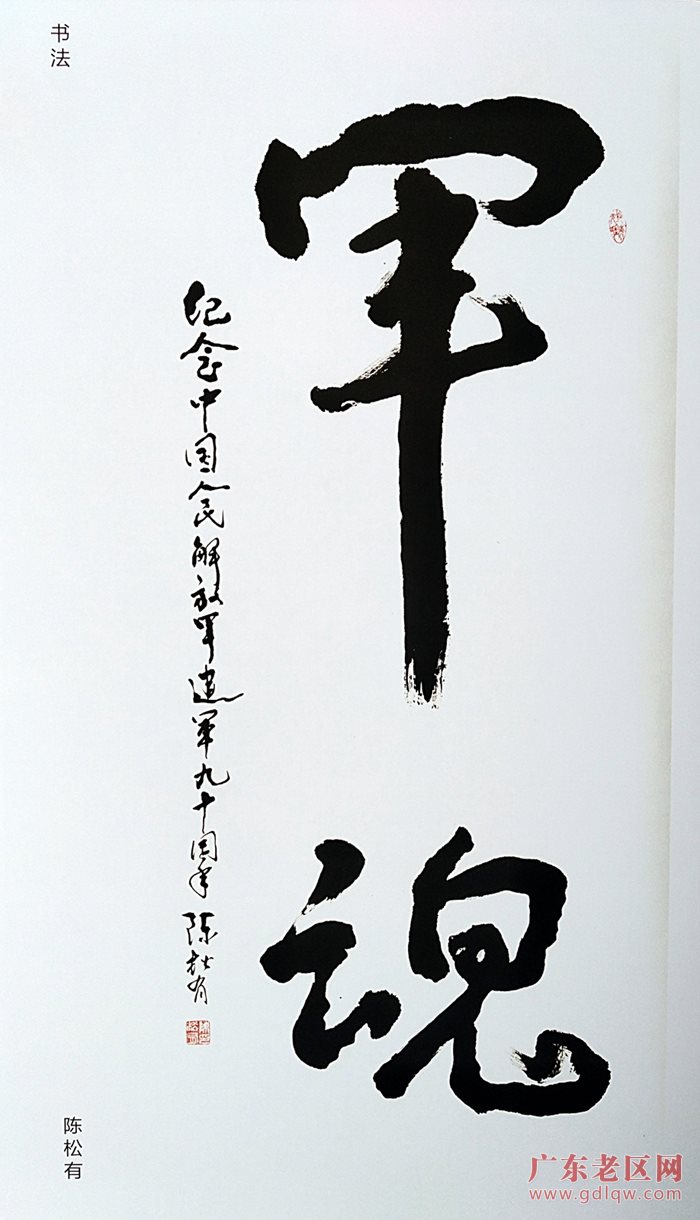 书法
军魂
纪念中国人民解放军建军九十周年 陈松有
陈松有
广东老区网
www.gdlqw.com